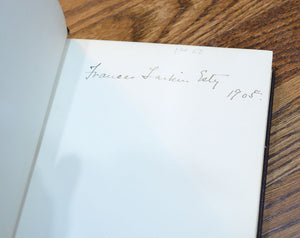 Frances Larkin Esty
1905.